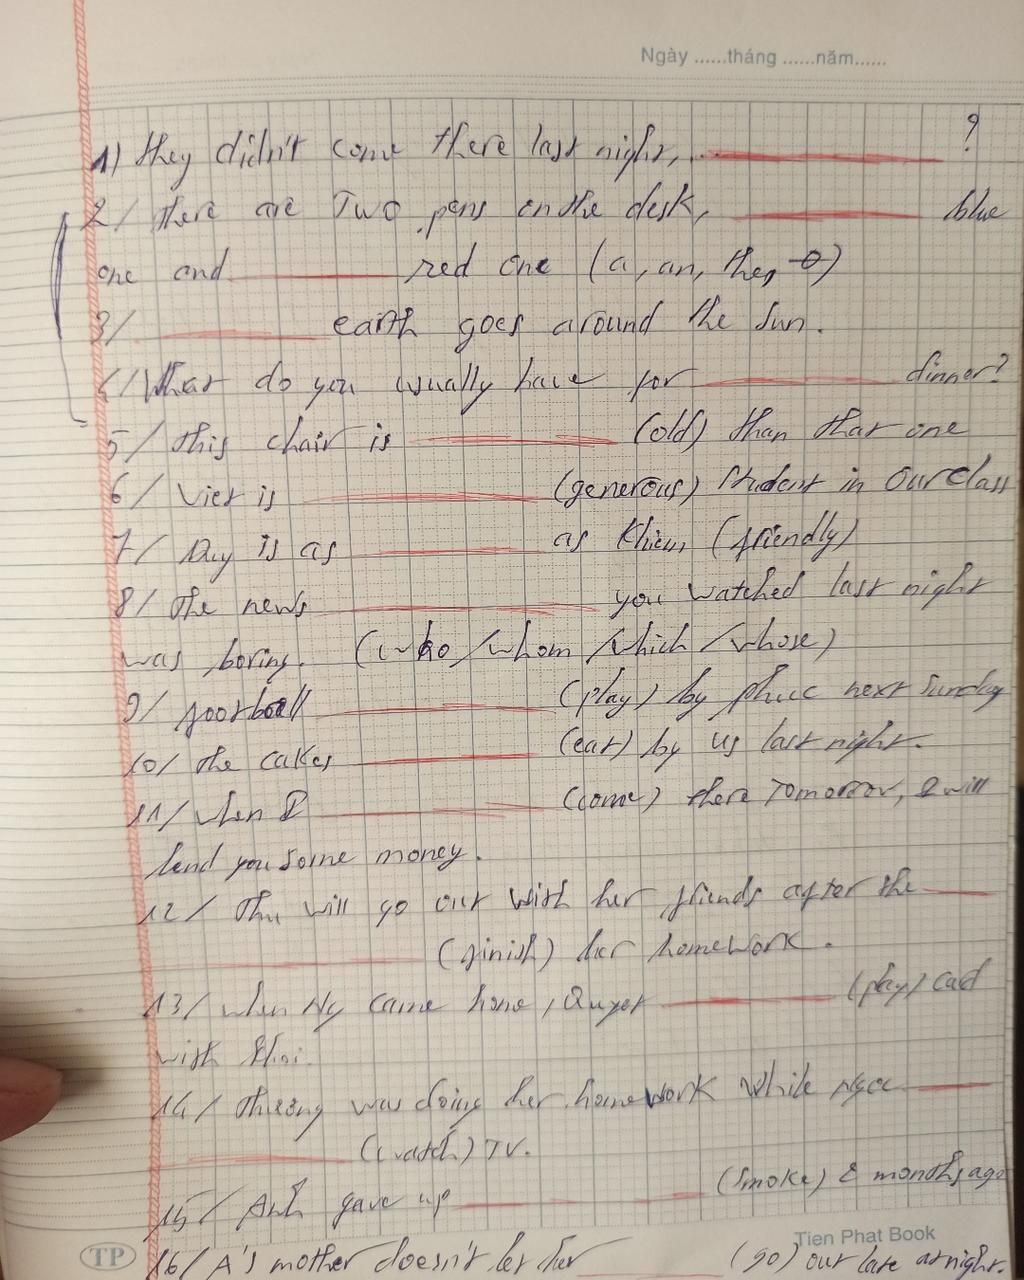 Ngày ......tháng ......năm......
1) they didn't come there last night, ?
2/ there are Two pens on the desk, blue
one and red one (a, an, the, ø)
3/ earth goes around the sun.
4/ What do you usually have for dinner?
5/ this chair is (old) than that one
6/ Viet is (generous) student in our class
7/ Duy is as as Khiem (friendly)
8/ the news you watched last night
was boring. (who/whom/which/whose)
9/ football (play) by phuc next Sunday
10/ the cakes (eat) by us last night.
11/ when I (come) there Tomorrow, I will
lend you some money.
12/ Thu will go out with her friends after she
(finish) her homework.
13/ when Ny came home, Quyet (play) card
with Khoi.
14/ Thuong was doing her homework while Ngoc
(watch) TV.
15/ Anh gave up (smoke) 2 months ago
TP
Tien Phat Book
16/ A's mother doesn't let her (go) out late at night.